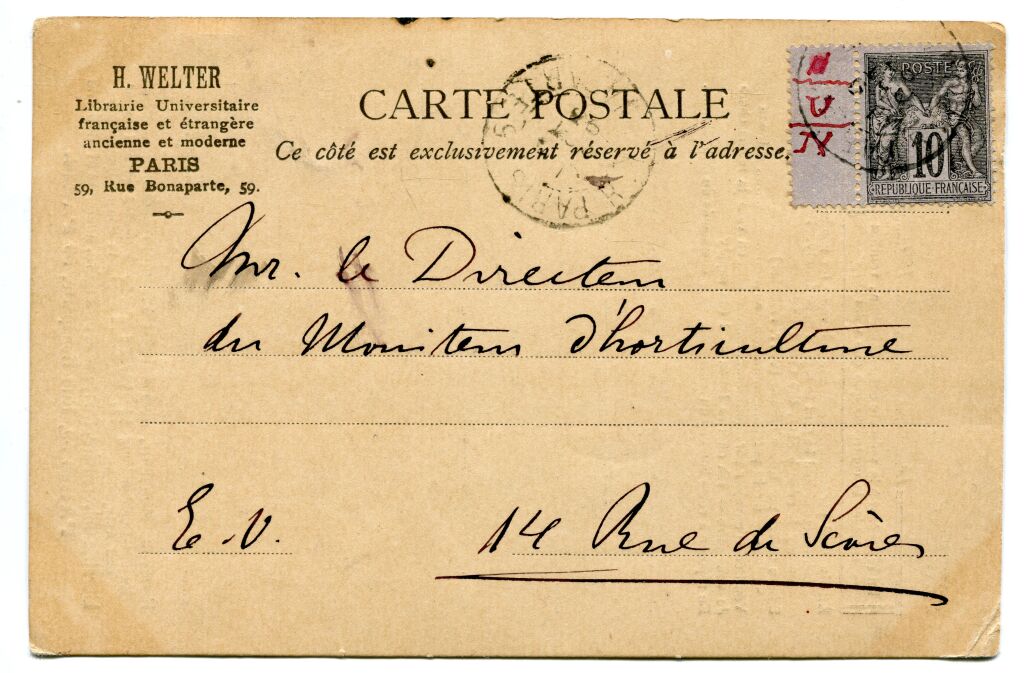 H. WELTER
Librairie Universitaire
française et étrangère
ancienne et moderne
PARIS
59, Rue Bonaparte, 59.
CARTE POSTALE
Ce côté est exclusivement réservé à l'adresse.
POSTE
10
RÉPUBLIQUE FRANÇAISE
PARIS
Mr. le Directeur
du Moniteur d'horticulture
E.V.
14 Rue de Sèvres